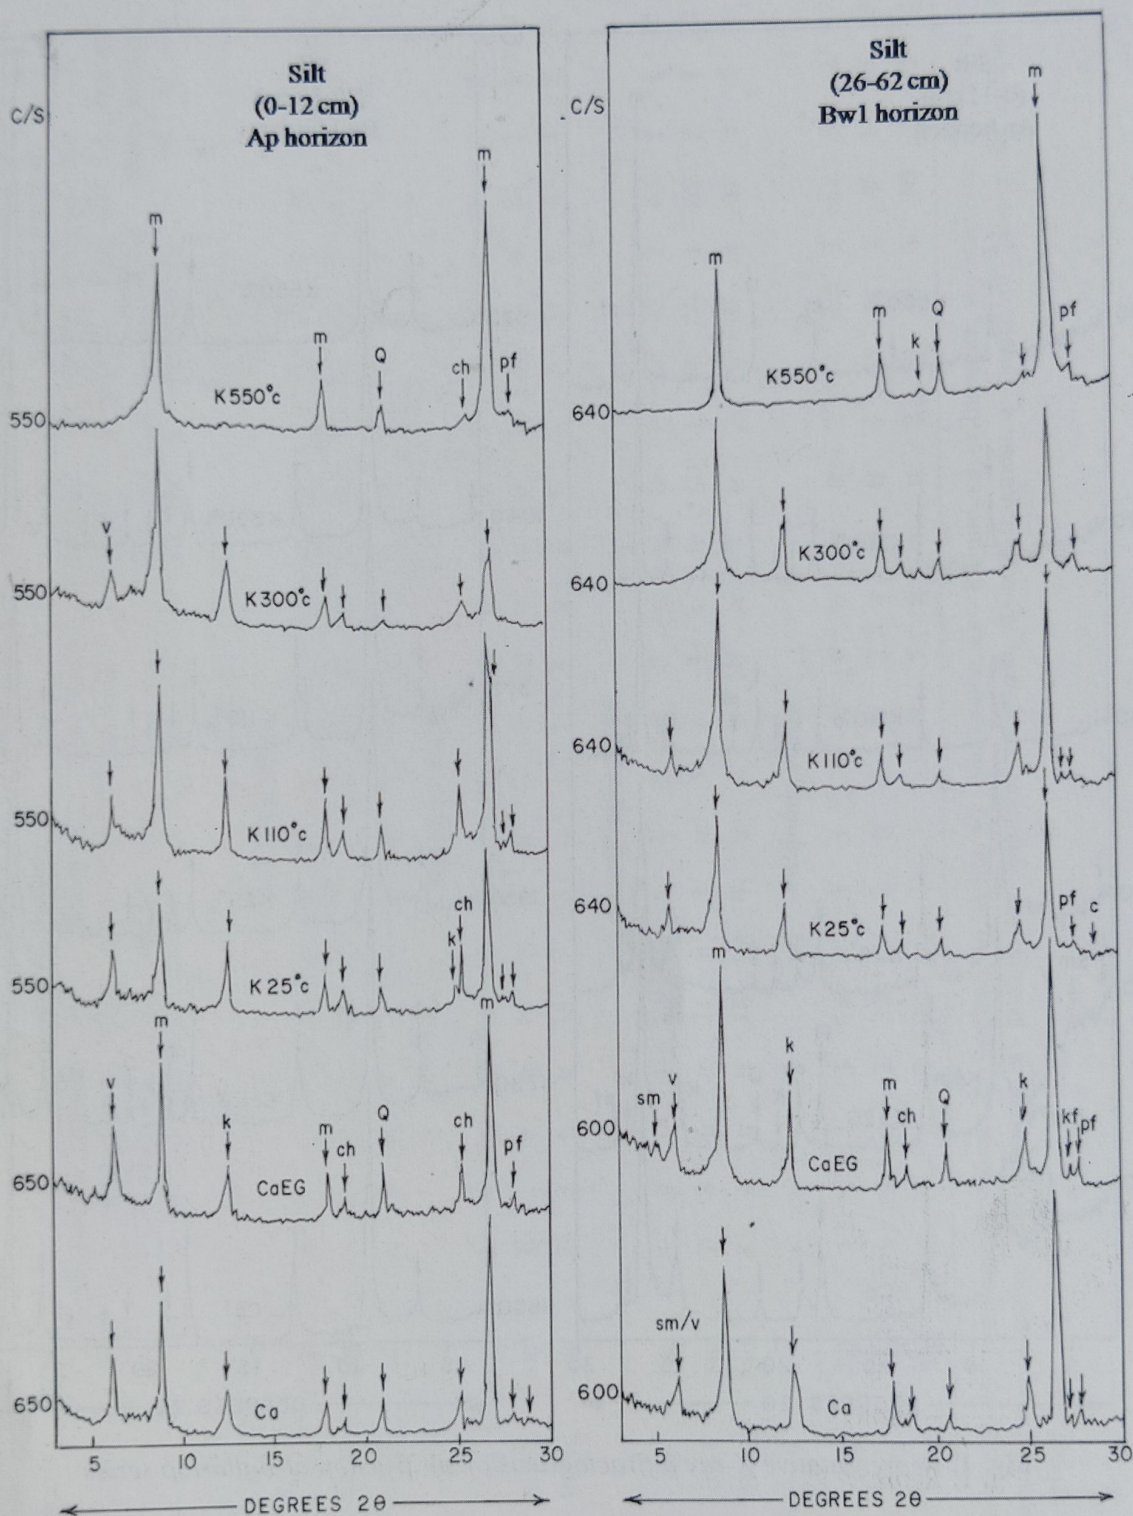 Silt
(0-12 cm)
Ap horizon
C/S
m
m
m
Q
ch
pf
K550°c
550
v
K300°c
550
K110°c
550
ch
k
K25°c
550
m
m
v
k
m
ch
Q
ch
pf
CaEG
650
Ca
650
5 10 15 20 25 30
DEGREES 2θ
Silt
(26-62 cm)
Bw1 horizon
C/S
m
m
m
k
Q
pf
K550°c
640
K300°c
640
K110°c
640
pf
c
K25°c
640
m
sm
v
k
m
ch
Q
k
kf
pf
CaEG
600
sm/v
Ca
600
5 10 15 20 25 30
DEGREES 2θ